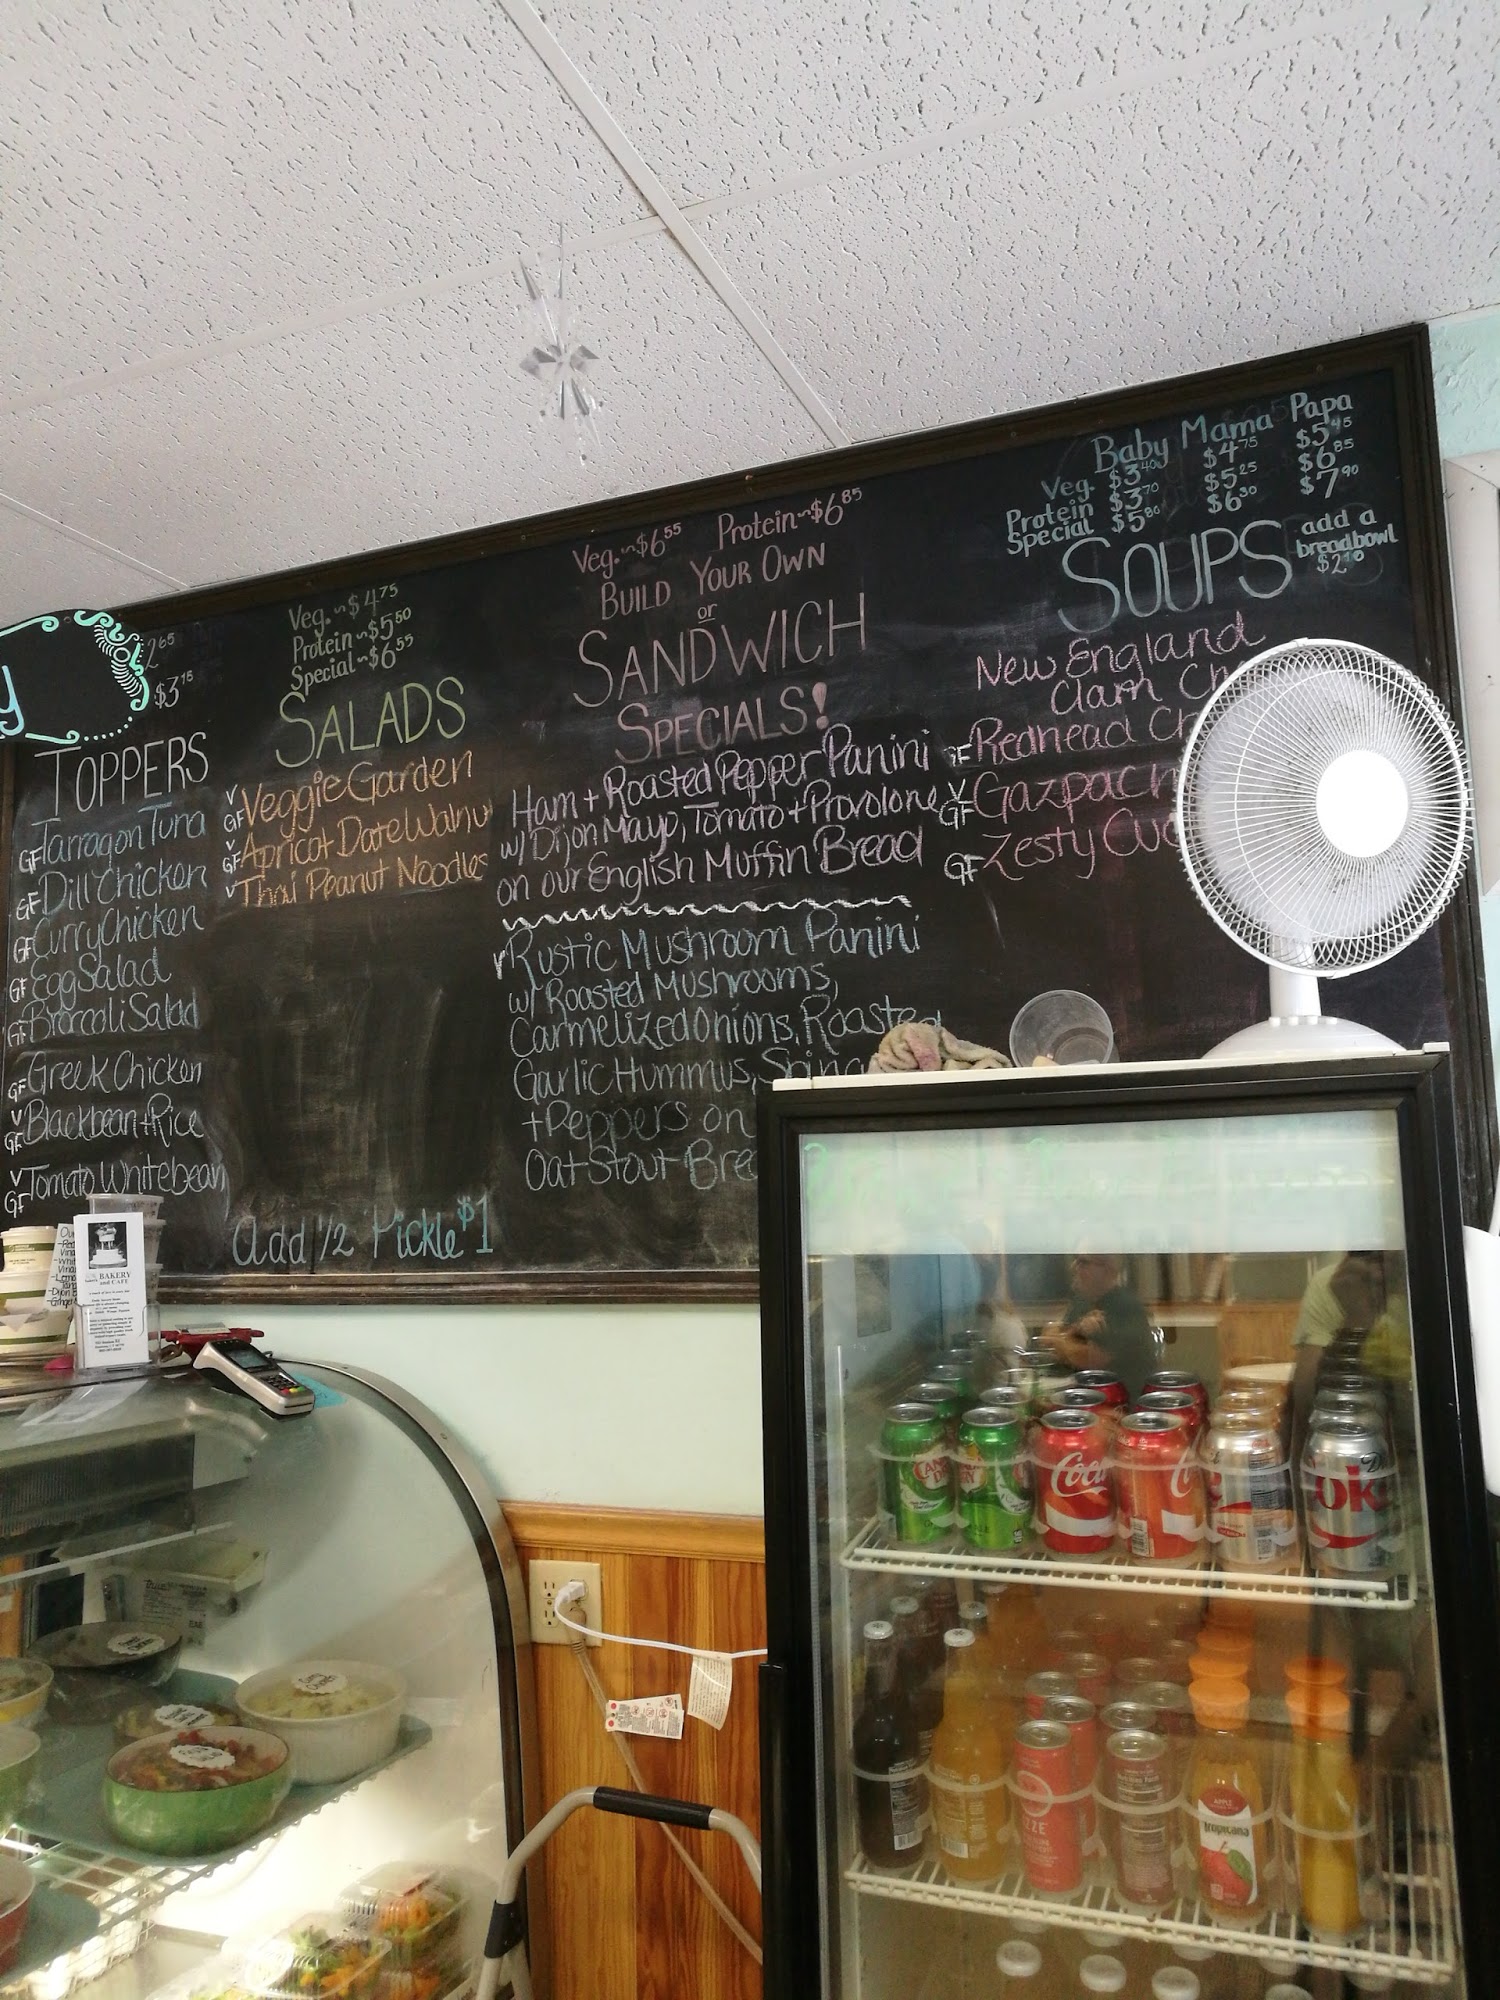 2.65
$3.15
TOPPERS
GF Tarragon Tuna
GF Dill Chicken
GF Curry Chicken
GF Egg Salad
GF Broccoli Salad
GF Greek Chicken
V GF Blackbean + Rice
V GF Tomato Whitebean
Veg. ~ $4.75
Protein ~ $5.50
Special ~ $6.55
SALADS
V GF Veggie Garden
V GF Apricot Date Walnu
V Thai Peanut Noodles
Add 1/2 Pickle $1
Veg. ~ $6.55 Protein ~ $6.85
BUILD YOUR OWN
or
SANDWICH
SPECIALS!
Ham + Roasted Pepper Panini
w/ Dijon Mayo, Tomato + Provolone
on our English Muffin Bread
V Rustic Mushroom Panini
w/ Roasted Mushrooms,
Carmelized Onions, Roasted
Garlic Hummus, Spina
+ Peppers on
Oat Stout Brea
Baby Mama Papa
Veg. $3.40 $4.75 $5.45
Protein $3.70 $5.25 $6.85
Special $5.80 $6.30 $7.90
SOUPS
add a
breadbowl
$2.10
New England
Clam Ch
GF Redhead Ch
V GF Gazpach
GF Zesty Cuc
BAKERY
and CAFE
Coca
Ok
IZZE
APPLE
Tropicana